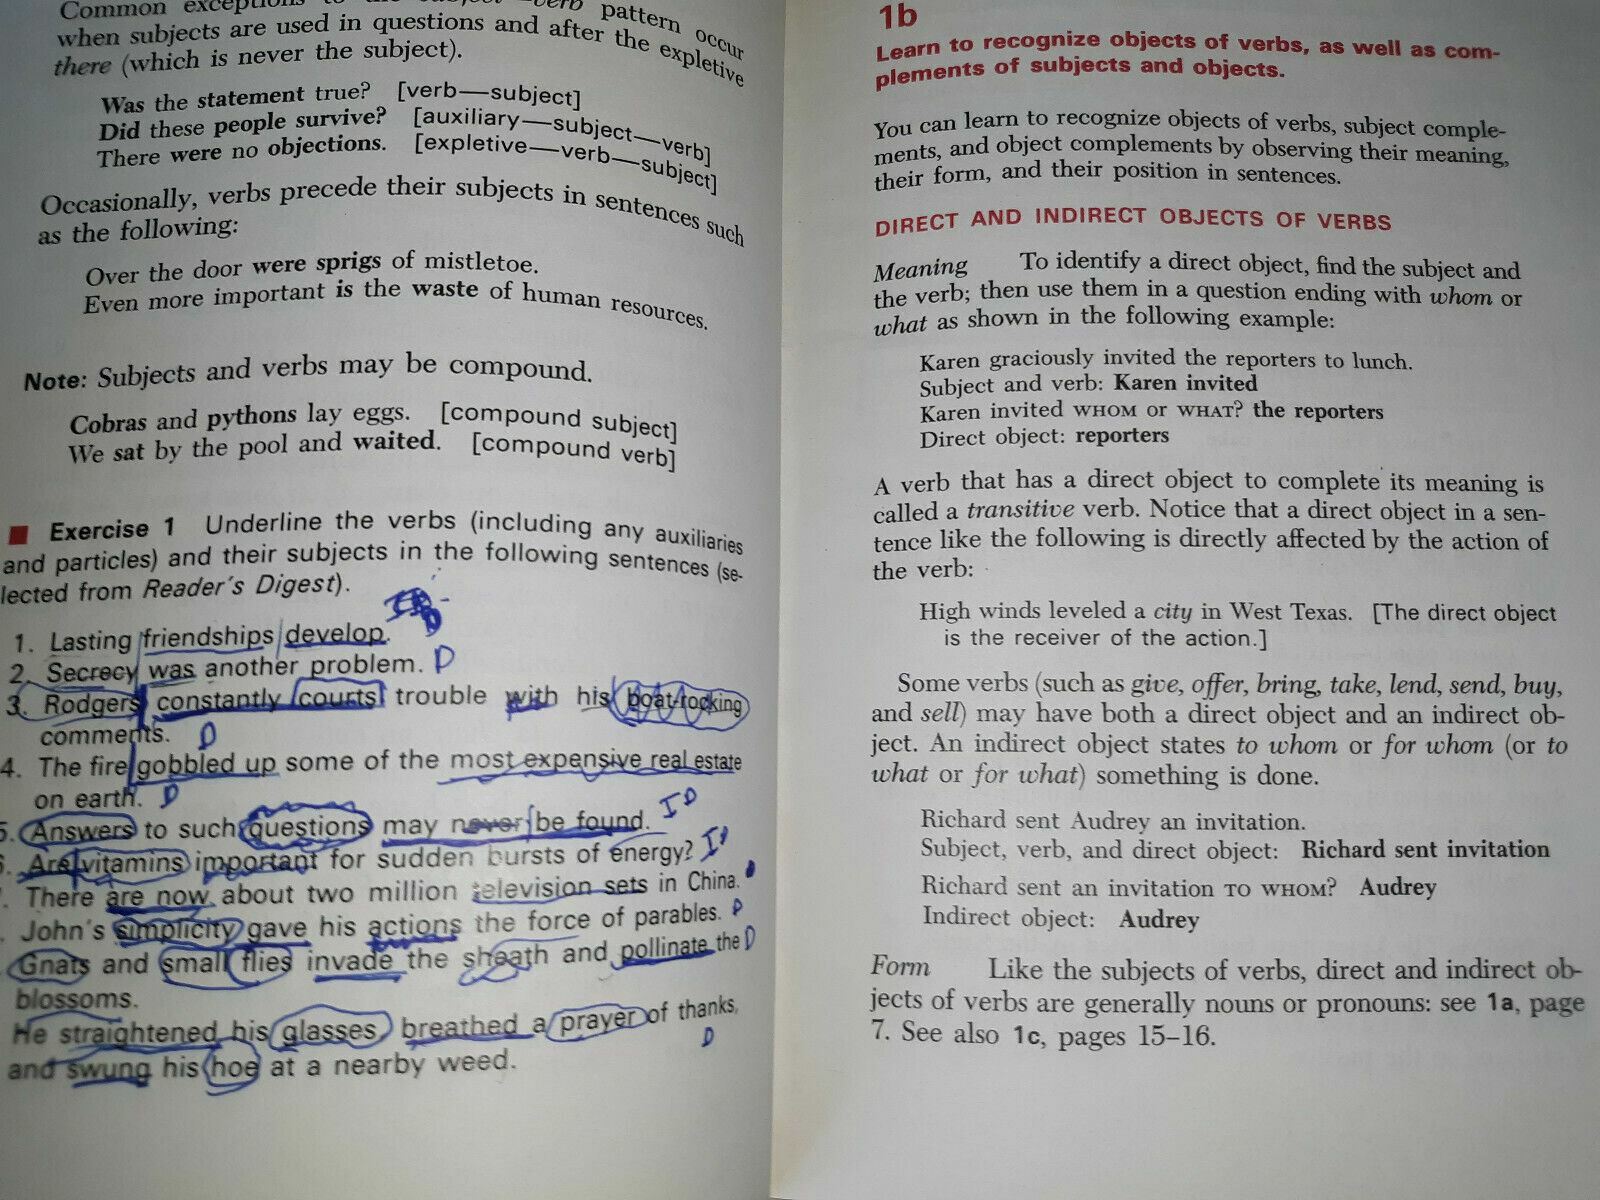 Common exceptions to the subject–verb pattern occur
when subjects are used in questions and after the expletive
there (which is never the subject).
Was the statement true? [verb—subject]
Did these people survive? [auxiliary—subject—verb]
There were no objections. [expletive—verb—subject]
Occasionally, verbs precede their subjects in sentences such
as the following:
Over the door were sprigs of mistletoe.
Even more important is the waste of human resources.
Note: Subjects and verbs may be compound.
Cobras and pythons lay eggs. [compound subject]
We sat by the pool and waited. [compound verb]
■ Exercise 1 Underline the verbs (including any auxiliaries
and particles) and their subjects in the following sentences (se-
lected from Reader's Digest).
1. Lasting friendships develop.
2. Secrecy was another problem. D
3. Rodgers constantly courts trouble with his boat-rocking
comments. D
4. The fire gobbled up some of the most expensive real estate
on earth. D
5. Answers to such questions may never be found. ID
6. Are vitamins important for sudden bursts of energy? ID
. There are now about two million television sets in China.
. John's simplicity gave his actions the force of parables. D
Gnats and small flies invade the sheath and pollinate the D
blossoms.
He straightened his glasses breathed a prayer of thanks,
and swung his hoe at a nearby weed. D
1b
Learn to recognize objects of verbs, as well as com-
plements of subjects and objects.
You can learn to recognize objects of verbs, subject comple-
ments, and object complements by observing their meaning,
their form, and their position in sentences.
DIRECT AND INDIRECT OBJECTS OF VERBS
Meaning To identify a direct object, find the subject and
the verb; then use them in a question ending with whom or
what as shown in the following example:
Karen graciously invited the reporters to lunch.
Subject and verb: Karen invited
Karen invited WHOM OR WHAT? the reporters
Direct object: reporters
A verb that has a direct object to complete its meaning is
called a transitive verb. Notice that a direct object in a sen-
tence like the following is directly affected by the action of
the verb:
High winds leveled a city in West Texas. [The direct object
is the receiver of the action.]
Some verbs (such as give, offer, bring, take, lend, send, buy,
and sell) may have both a direct object and an indirect ob-
ject. An indirect object states to whom or for whom (or to
what or for what) something is done.
Richard sent Audrey an invitation.
Subject, verb, and direct object: Richard sent invitation
Richard sent an invitation TO WHOM? Audrey
Indirect object: Audrey
Form Like the subjects of verbs, direct and indirect ob-
jects of verbs are generally nouns or pronouns: see 1a, page
7. See also 1c, pages 15–16.